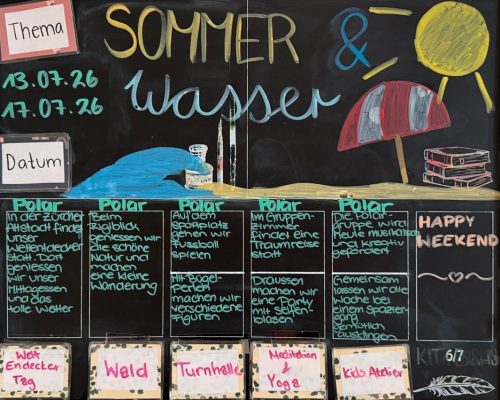 Thema
SOMMER &
Wasser
13.07.26
17.07.26
Datum
Polar
In der Zürcher
Altstadt findet
unser
Weltentdecker
statt. Dort
geniessen
wir unser
Mittagessen
und das
tolle Wetter
Polar
Beim
Rigiblick
geniessen wir
die schöne
Natur und
machen
eine kleine
Wanderung
Polar
Auf dem
Sportplatz
gehen wir
Fussball
spielen
Mit Bügel-
Perlen
machen wir
verschiedene
Figuren
Polar
Im Gruppen-
Zimmer
findet eine
Traumreise
statt
Draussen
machen wir
eine Party
mit Seifen-
blasen
Polar
Die Polar-
gruppe wird
heute musikalisch
und kreativ
gefördert
Gemeinsam
lassen wir die
Woche bei
einem Spazier-
gang
gemütlich
ausklingen
HAPPY
WEEKEND
Welt
Endecker
Tag
Wald
Turnhalle
Meditation
&
Yoga
Kids Atelier
KIT 6/7